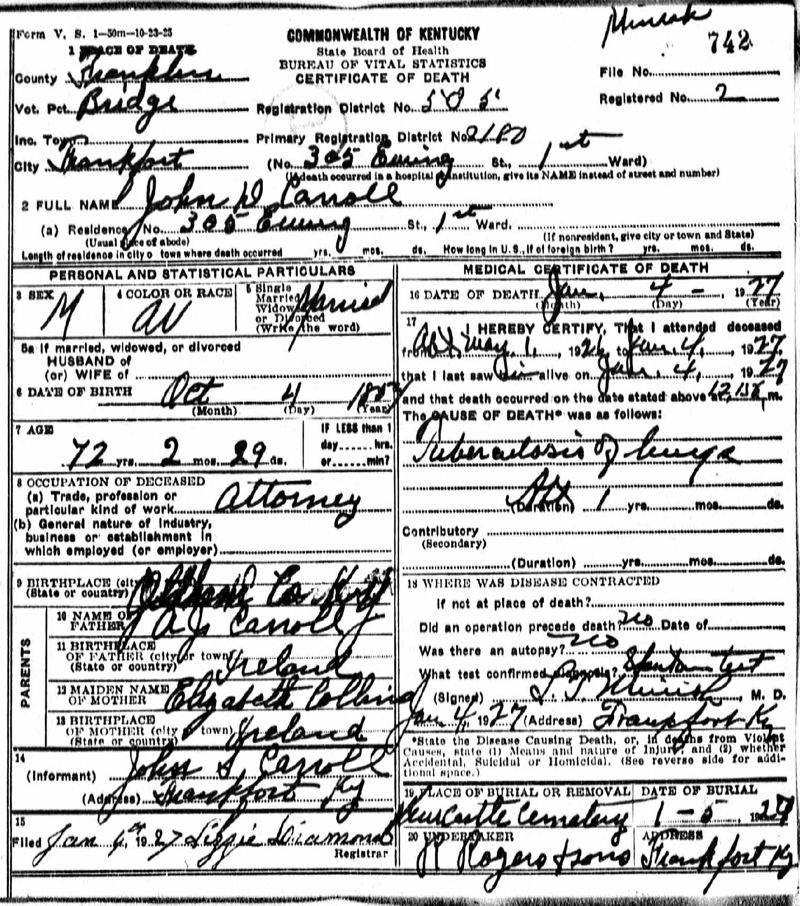 Form V. S. 1—50m—10-23-25
COMMONWEALTH OF KENTUCKY
State Board of Health
BUREAU OF VITAL STATISTICS
CERTIFICATE OF DEATH
742
File No.
Registered No. 2
1 PLACE OF DEATH
County Franklin
Vot. Pct. Bridge
Registration District No. 505
Inc. Town
Primary Registration District No. 2180
City Frankfort
(No. 305 Ewing St., 1st Ward)
(If death occurred in a hospital or institution, give its NAME instead of street and number)
2 FULL NAME John D Carroll
(a) Residence, No. 305 Ewing St., 1st Ward.
(Usual place of abode)
(If nonresident, give city or town and State)
Length of residence in city o town where death occurred yrs. mos. ds. How long in U. S., if of foreign birth? yrs. mos. ds.
PERSONAL AND STATISTICAL PARTICULARS
3 SEX M
4 COLOR OR RACE W
5 Single Married Widowed or Divorced (Write the word) Married
5a If married, widowed, or divorced
HUSBAND of
(or) WIFE of
6 DATE OF BIRTH Oct 4
(Month) (Day) (Year)
7 AGE
72 yrs. 2 mos. 29 ds.
IF LESS than 1
day hrs.
or min?
8 OCCUPATION OF DECEASED
(a) Trade, profession or
particular kind of work Attorney
(b) General nature of industry,
business or establishment in
which employed (or employer)
9 BIRTHPLACE (city
(State or country) Oldham Co Ky
PARENTS
10 NAME OF
FATHER A J Carroll
11 BIRTHPLACE
OF FATHER (city or town)
(State or country) Ireland
12 MAIDEN NAME
OF MOTHER Elizabeth Collins
13 BIRTHPLACE
OF MOTHER (city or town)
(State or country) Ireland
14
(Informant) John S Carroll
(Address) Frankfort Ky
15
Filed Jan 1927 Lizzie Diamond
Registrar
MEDICAL CERTIFICATE OF DEATH
16 DATE OF DEATH Jan. 4 - 1927
(Month) (Day) (Year)
17
I HEREBY CERTIFY, That I attended deceased
from May 1, 1926 to Jan. 4, 1927,
that I last saw alive on Jan. 4, 1927
and that death occurred on the date stated above m.
The CAUSE OF DEATH* was as follows:
Tuberculosis of lungs
(Duration) 1 yrs. mos. ds.
Contributory
(Secondary)
(Duration) yrs. mos. ds.
18 WHERE WAS DISEASE CONTRACTED
If not at place of death?
Did an operation precede death no Date of
Was there an autopsy? no
What test confirmed diagnosis? Sputum test
(Signed) Minish M. D.
Jan 4, 1927 (Address) Frankfort Ky
*State the Disease Causing Death, or, in deaths from Violent
Causes, state (1) Means and nature of Injury; and (2) whether
Accidental, Suicidal or Homicidal. (See reverse side for addi-
tional space.)
19 PLACE OF BURIAL OR REMOVAL
DATE OF BURIAL
Newcastle Cemetery 1-5 1927
20 UNDERTAKER
ADDRESS
R Rogers & sons Frankfort Ky